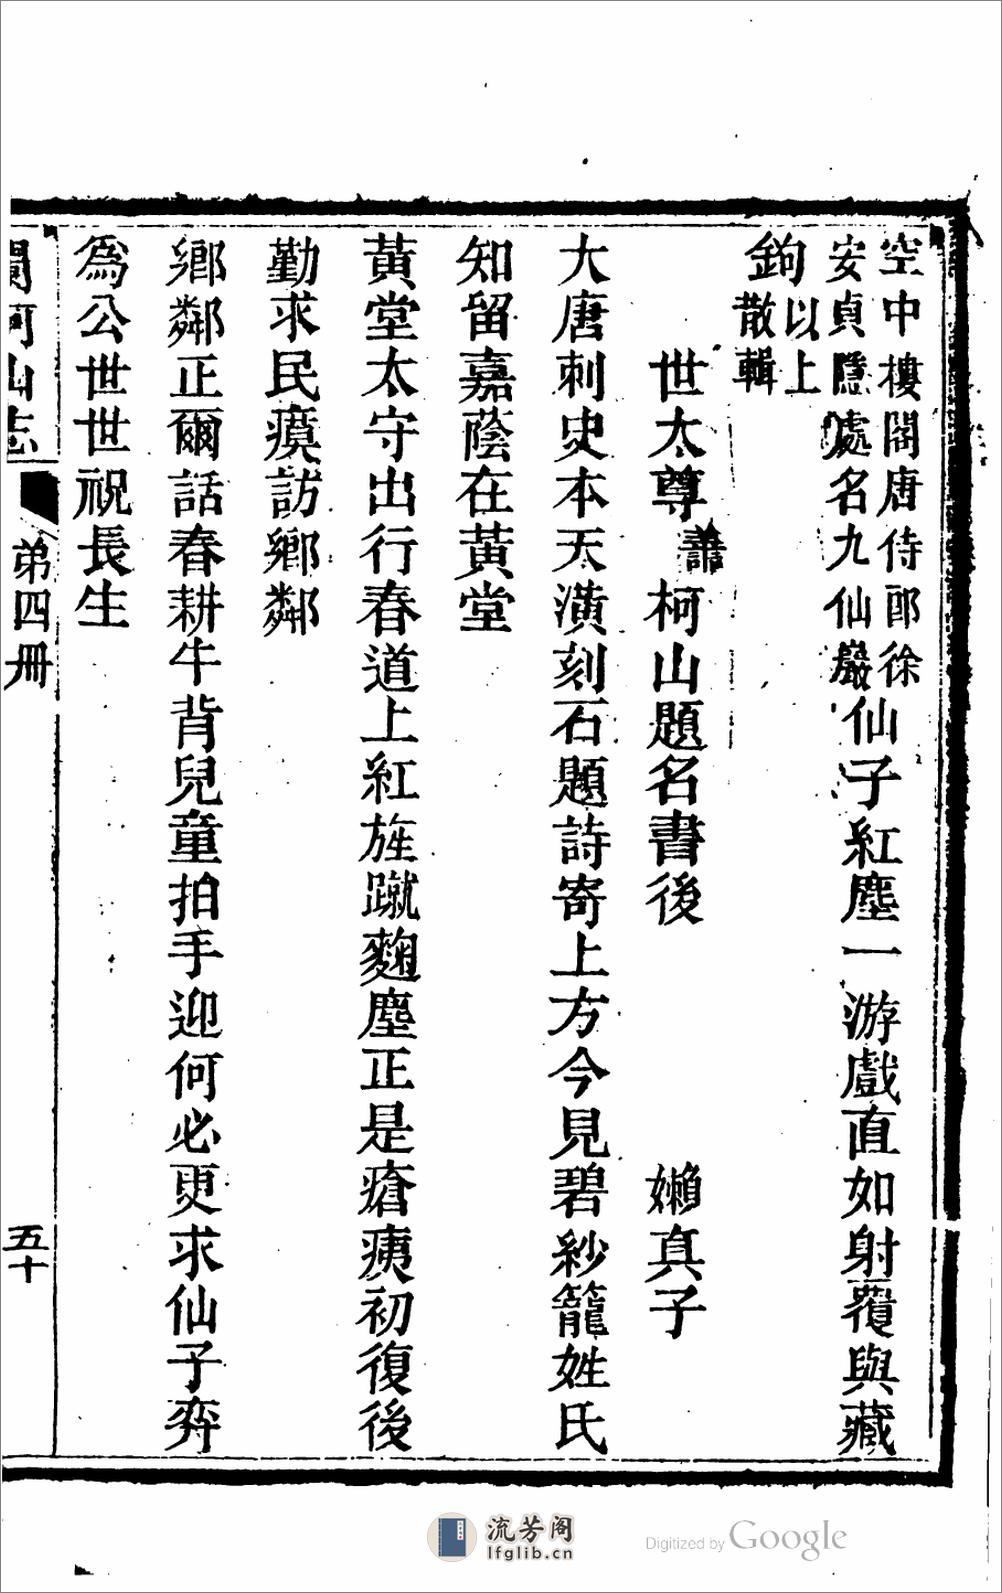 空中樓閣唐侍郎徐
安貞隱處名九仙巖
仙子紅塵一游戲直如射覆與藏
鉤
以上
散輯
世太尊
善
柯山題名書後
嬾真子
大唐刺史本天潢刻石題詩寄上方今見碧紗籠姓氏
知留嘉蔭在黃堂
黃堂太守出行春道上紅旌蹴麴塵正是瘡痍初復後
勤求民瘼訪鄉鄰
鄉鄰正爾話春耕牛背兒童拍手迎何必更求仙子弈
為公世世祝長生
爛柯山志
弟四冊
五十
流芳阁
lfglib.cn
Digitized by Google